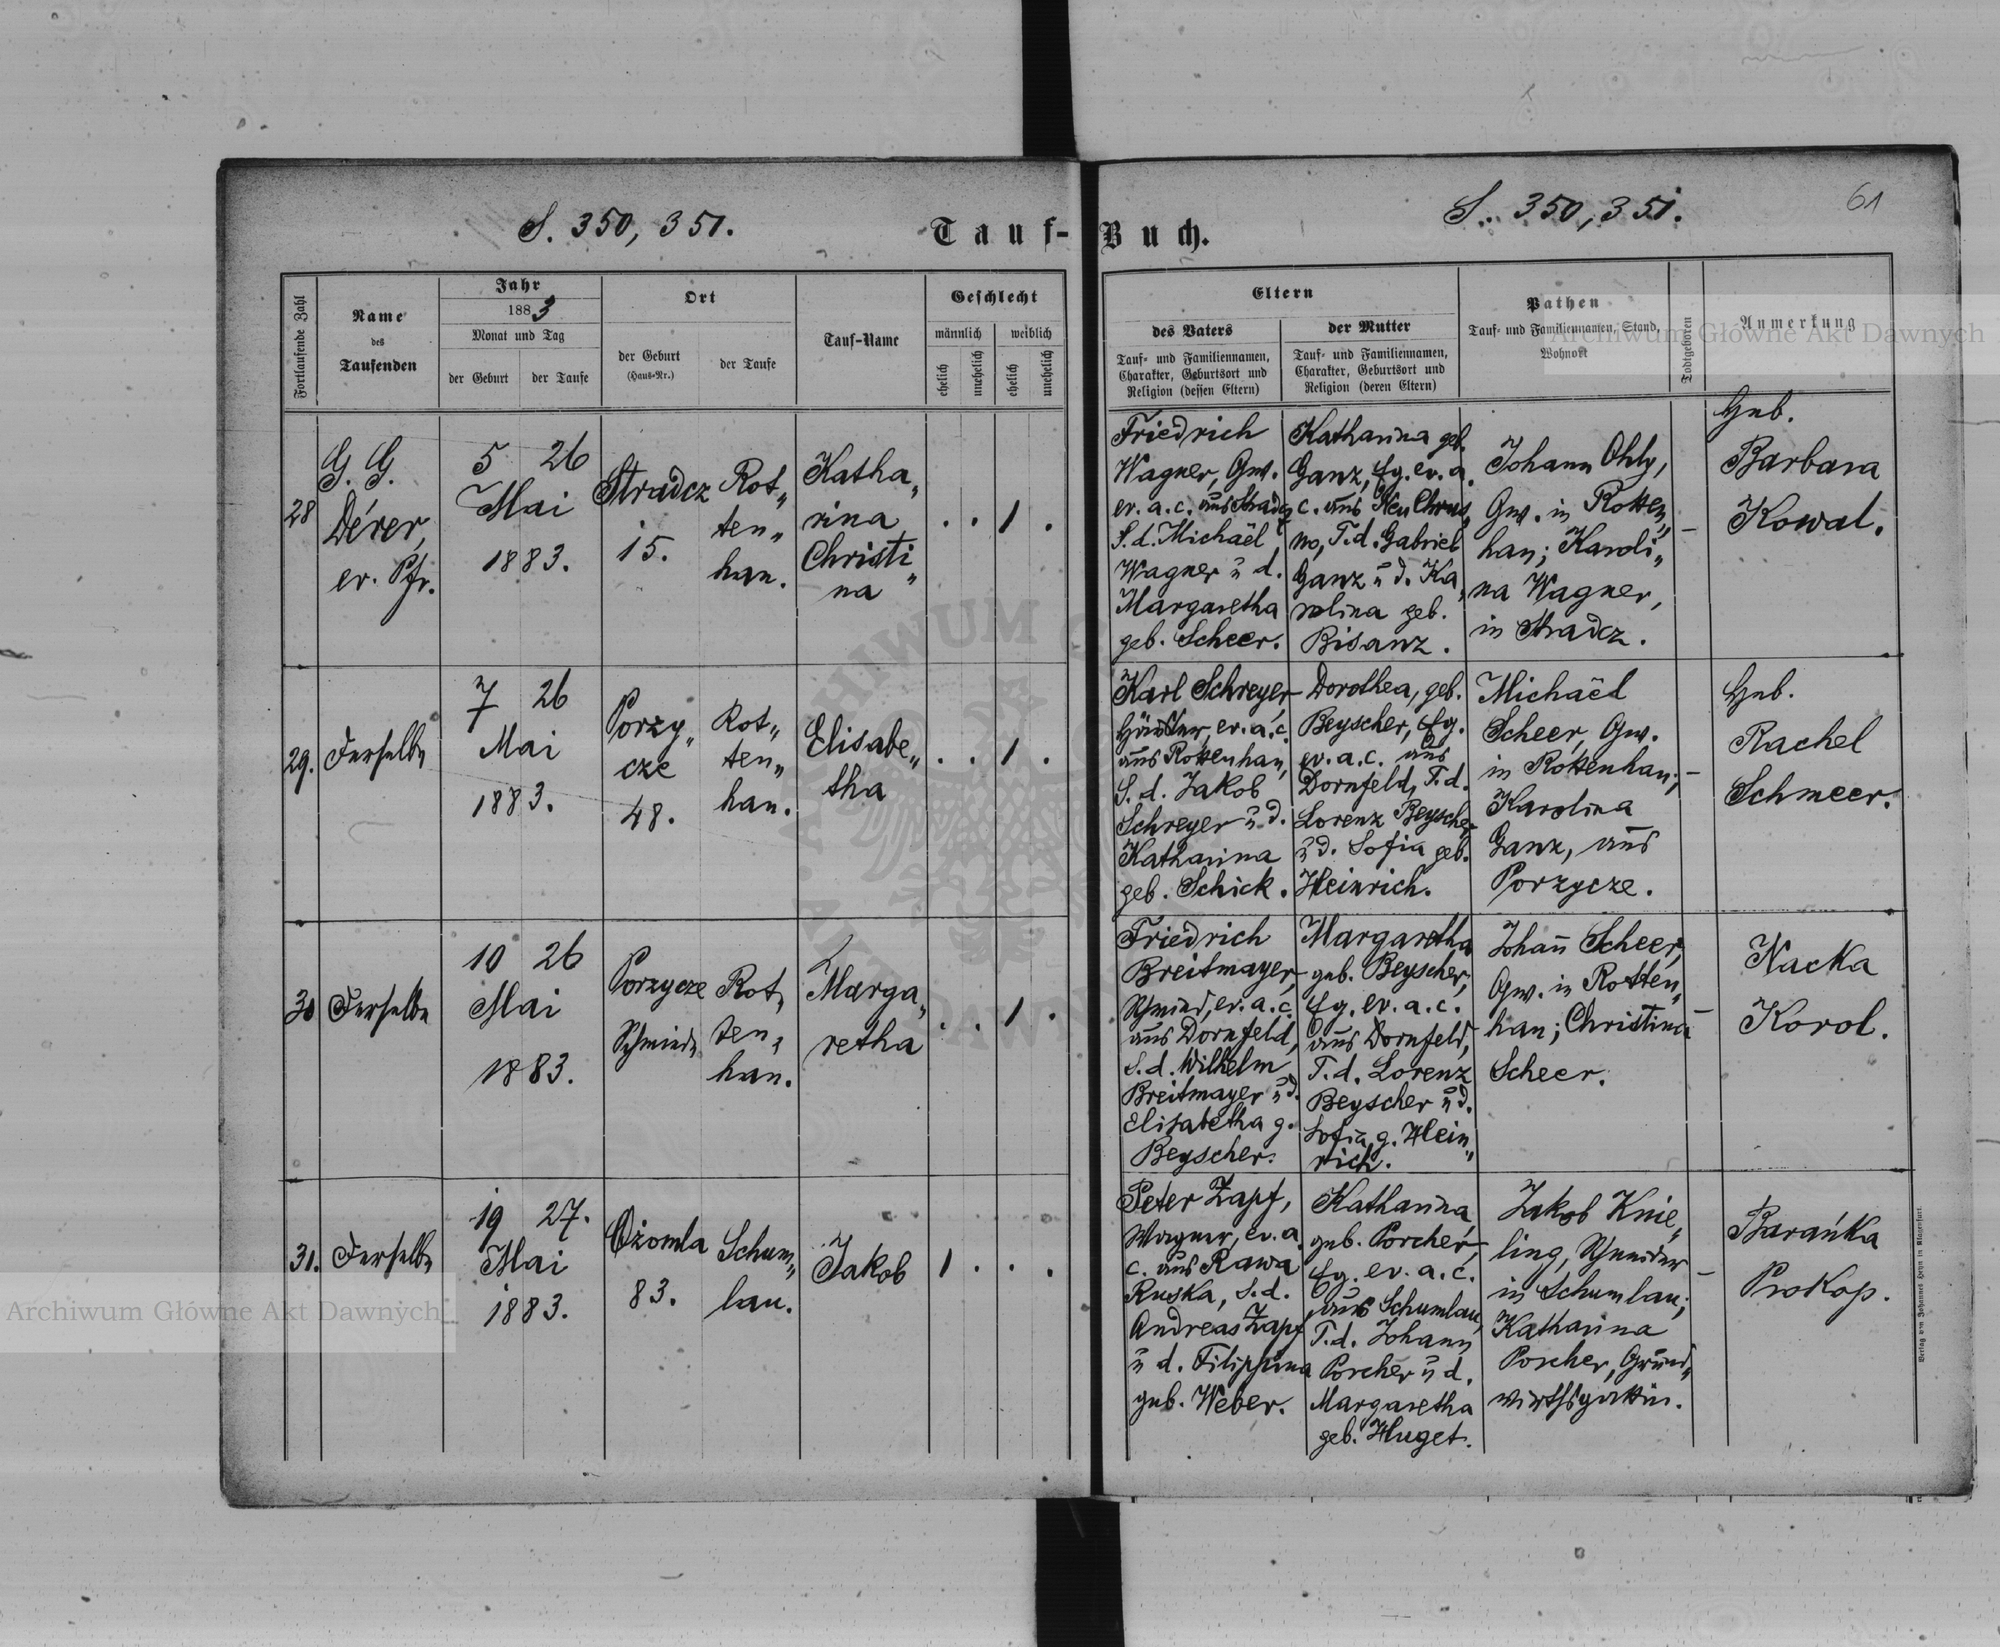 S. 350, 351.
S. 350, 351.
61
Tauf-
Buch.
Fortlaufende Zahl
Name
des
Taufenden
Jahr
1883
Monat und Tag
der Geburt
der Taufe
Ort
der Geburt
(Haus-Nr.)
der Taufe
Tauf-Name
Geschlecht
männlich
weiblich
ehelich
unehelich
ehelich
unehelich
Eltern
des Vaters
Tauf- und Familiennamen,
Charakter, Geburtsort und
Religion (dessen Eltern)
der Mutter
Tauf- und Familiennamen,
Charakter, Geburtsort und
Religion (deren Eltern)
Pathen
Tauf- und Familiennamen, Stand,
Wohnort
Todtgeboren
Anmerkung
28
G. G.
Dérer,
ev. Pfr.
5 26
Mai
1883.
Stradcz
15.
Rot„
ten„
han.
Katha„
rina
Christi„
na
. . 1 .
Friedrich
Wagner, Gw.
ev. a. c. aus Stradcz
S. d. Michaël
Wagner u d.
Margaretha
geb. Scheer.
Katharina geb.
Ganz, Eg. ev. a.
c. aus Neu Chrus„
no, T. d. Gabriel
Ganz u d. Ka„
rolina geb.
Bisanz.
Johann Ohly,
Gw. in Rotten„
han; Karoli„
na Wagner,
in Stradcz.
–
Heb.
Barbara
Kowal.
29.
Derselbe
7 26
Mai
1883.
Porzy„
cze
48.
Rot„
ten„
han.
Elisabe„
tha
. . 1 .
Karl Schreyer,
Häusler, ev. a. c.
aus Rottenhan,
S. d. Jakob
Schreyer u d.
Katharina
geb. Schick.
Dorothea, geb.
Beyscher, Eg.
ev. a. c. aus
Dornfeld, T. d.
Lorenz Beyscher
u d. Sofia geb.
Heinrich.
Michaël
Scheer, Gw.
in Rottenhan;
Karolina
Ganz, aus
Porzycze.
–
Heb.
Rachel
Schmeer.
30
Derselbe
10 26
Mai
1883.
Porzycze
Schmiede
Rot„
ten„
han.
Marga„
retha
. . 1 .
Friedrich
Breitmayer,
Schmied, ev. a. c.
aus Dornfeld,
S. d. Wilhelm
Breitmayer u d.
Elisabetha g.
Beyscher.
Margaretha
geb. Beyscher,
Eg. ev. a. c.
aus Dornfeld,
T. d. Lorenz
Beyscher u d.
Sofia g. Hein„
rich.
Johann Scheer,
Gw. in Rotten„
han; Christina
Scheer.
–
Nacka
Korol.
31.
Derselbe
19 27.
Mai
1883.
Ożomla
83.
Schum„
lau.
Jakob
1 . . .
Peter Zapf,
Wagner, ev. a.
c. aus Rawa
Ruska, S. d.
Andreas Zapf
u d. Filippina
geb. Weber.
Katharina,
geb. Porcher,
Eg. ev. a. c.
aus Schumlau,
T. d. Johann
Porcher u d.
Margaretha
geb. Huget.
Jakob Knie„
ling, Schneider
in Schumlau;
Katharina
Porcher, Grund„
wirthsgattin.
–
Barańka
Prokop.
Verlag von Johannes Heyn in Klagenfurt.
Archiwum Główne Akt Dawnych
Archiwum Główne Akt Dawnych